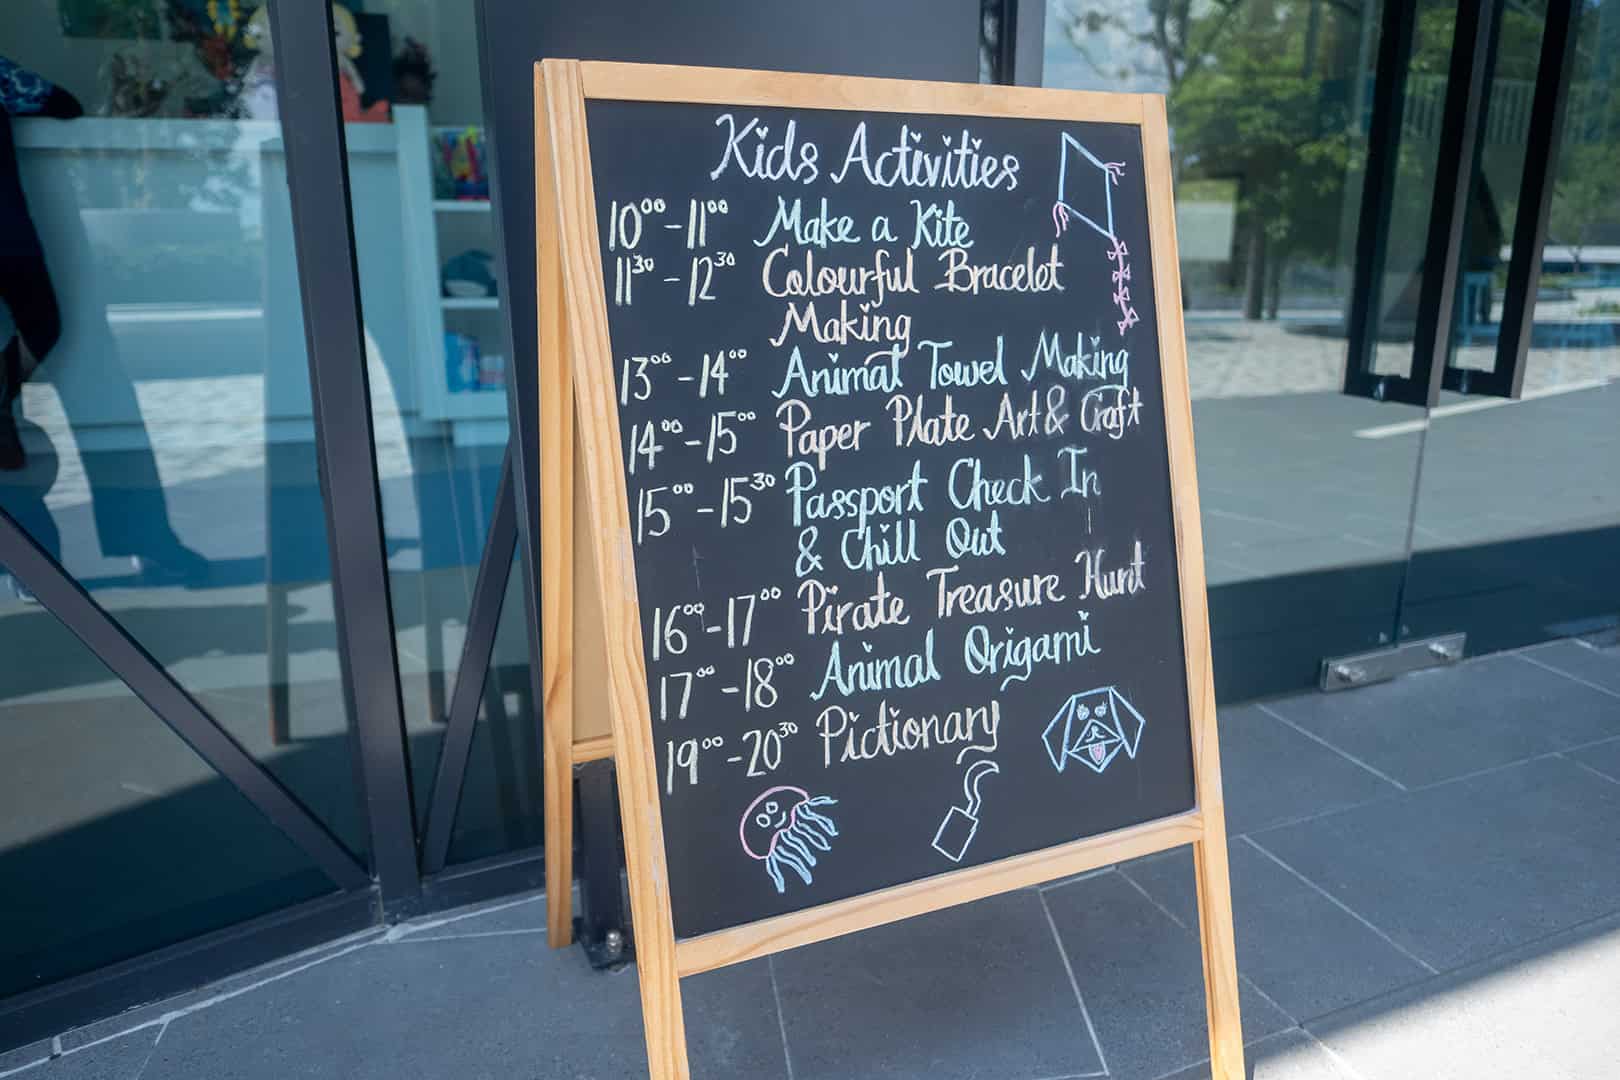 Kids Activities
10⁰⁰-11⁰⁰ Make a Kite
11³⁰-12³⁰ Colourful Bracelet
Making
13⁰⁰-14⁰⁰ Animal Towel Making
14⁰⁰-15⁰⁰ Paper Plate Art & Craft
15⁰⁰-15³⁰ Passport Check In
& Chill Out
16⁰⁰-17⁰⁰ Pirate Treasure Hunt
17⁰⁰-18⁰⁰ Animal Origami
19⁰⁰-20³⁰ Pictionary